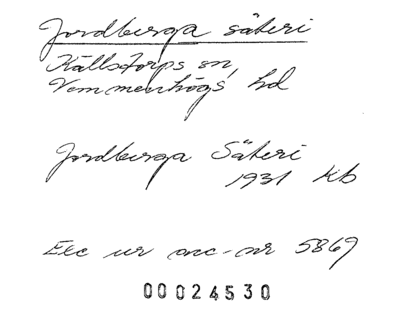 Jordberga säteri
Källstorps sn,
Vemmenhögs hd
Jordberga Säteri
1931 Kb
Exc ur acc-nr 5869
00024530